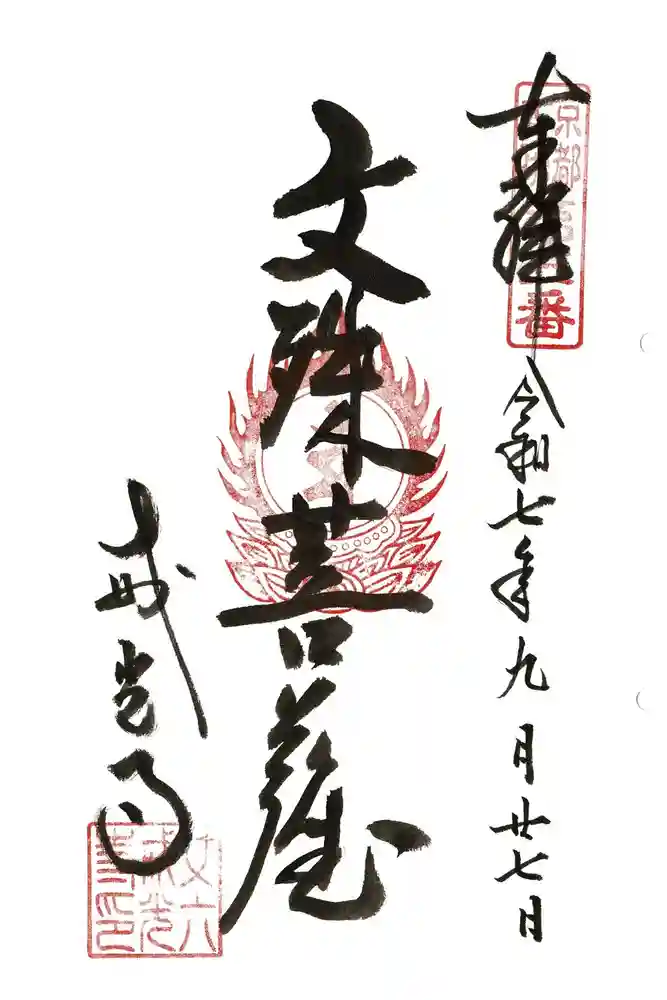 奉拝
令和七年九月廿七日
京都
番
文殊菩薩
戒光寺
丈六
戒光
寺印